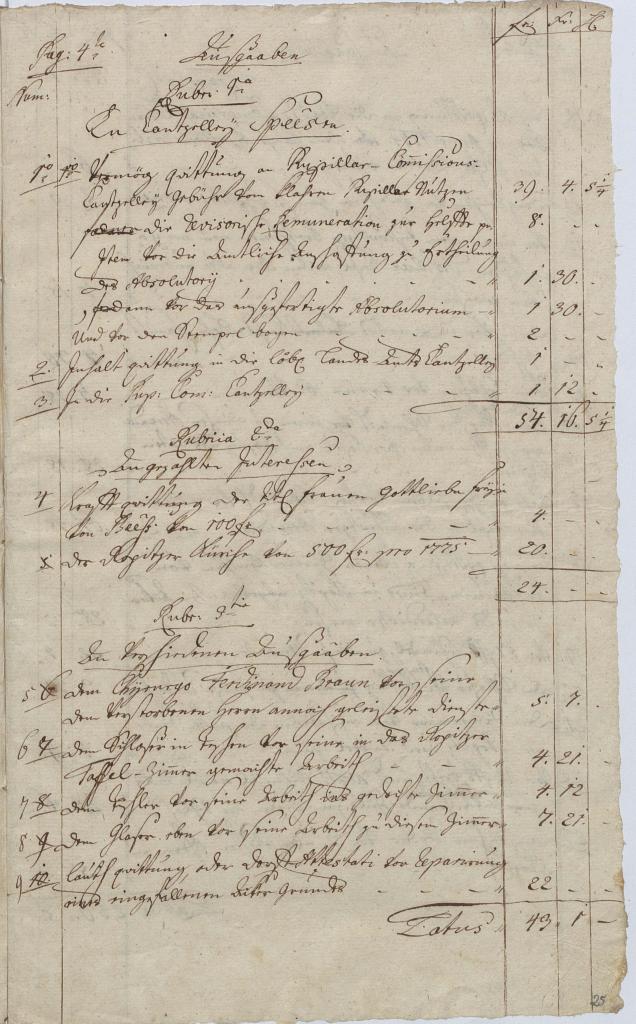 fr: Xr: H
Pag: 4te
Ausgaaben
Num:
Ruber: 1a
An Cantzelley Speesen.
1o Vermög quittung an Pupillar-Commissions-
Cantzelley Gebühr von klahren Pupillar Nutzen 39. 4. 5 1/4
die revisorische Remuneration zur Helffte pr. 8. - -
Item vor die Amtliche zu Ertheilung
des Absolutory 1. 30. -
dann vor das ausgefertigte Absolutorium 1 30. -
Und vor den Stempel bogen 2 - -
2. Inhalt quittung in die löbl. Landes-Amts Cantzelley 1 - -
3. In die Pup: Com: Cantzelley 1 12 -
54. 16. 5 1/4
Rubrica 2da
An gezahlten Interessen
4 Krafft quittung der titl Frauen Gottliebe
von Beess von 100 fr 4. - -
5 der Kirche von 500 fr: pro 1775 20. - -
24. - -
Ruber: 3tia
An Verschiedenen Ausgaaben.
5 6 dem Chyrurgo Ferdinand Braun vor seine
dem verstorbenen Herrn annoch geleistete Dienste 5. 7. -
6 7 dem Schlosser in Teschen vor seine in das
Taffel-Zimmer gemachte Arbeith 4. 21. -
7 8 dem Tischler vor seine Arbeith das gedachte Zimmer 4. 12
8 9 dem Glaser eben vor seine Arbeith zu diesem Zimmer 7. 21. -
9 10. lauth quittung oder Attestati vor Reparirung
eingefallenen Grundes 22 - -
Latus 43 1 -
25